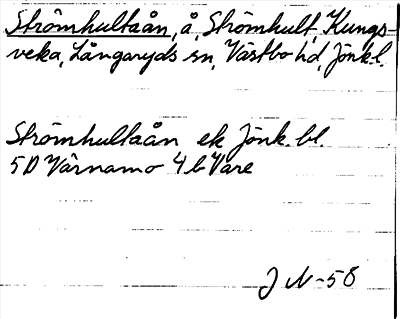 Strömhultaån, å, Strömhult, Kungs-
veka, Långaryds sn, Västbo hd, Jönk.l.
Strömhultaån ek Jönk. bl.
5D Värnamo 4b Vare
J N-58